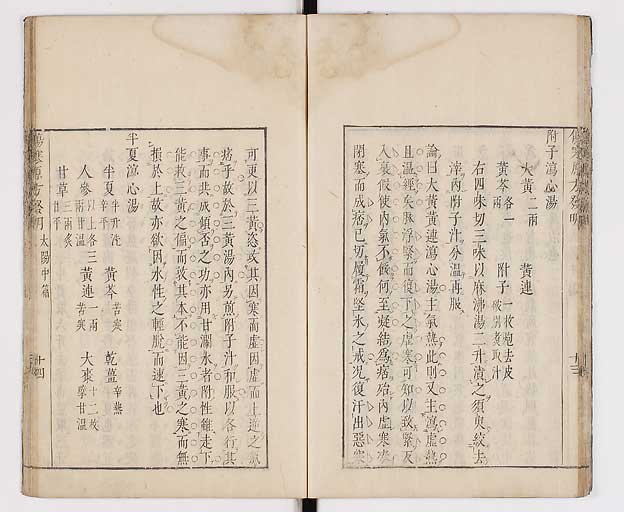 附子瀉心湯
大黃二兩 黃連
黃芩各一 附子一枚炮去皮破別煑取汁
右四味切三味以麻沸湯二升漬之須臾絞去
滓內附子汁分溫再服
論曰大黃黃連瀉心湯主氣熱此則又主瀉虛熱
且溫經矣脉浮緊而復下之虛寒可知以致緊反
入裏假使內氣不餒何至凝結為痞殆內虛寒凑
閉塞而成痞已切履霜堅冰之戒况復汗出惡寒
可更以三黃恣
其因寒而虛因虛而上逆之氣
痞乎故於三黃湯內另煎附子汁和服以各行其
事而共成傾否之功亦用甘瀾水者附性雖走下
能救三黃之偏而殺其本不能因三黃之寒而無
損於上故亦欲因水性之輕脫而速下也
半夏瀉心湯
半夏半升洗辛平 黃芩苦寒 乾薑辛熱
人參以上各三兩甘溫 黃連一兩苦寒 大棗十二枚擘甘溫
甘草三兩炙甘平
傷寒原方發明 太陽中篇 十四
傷寒原方發明